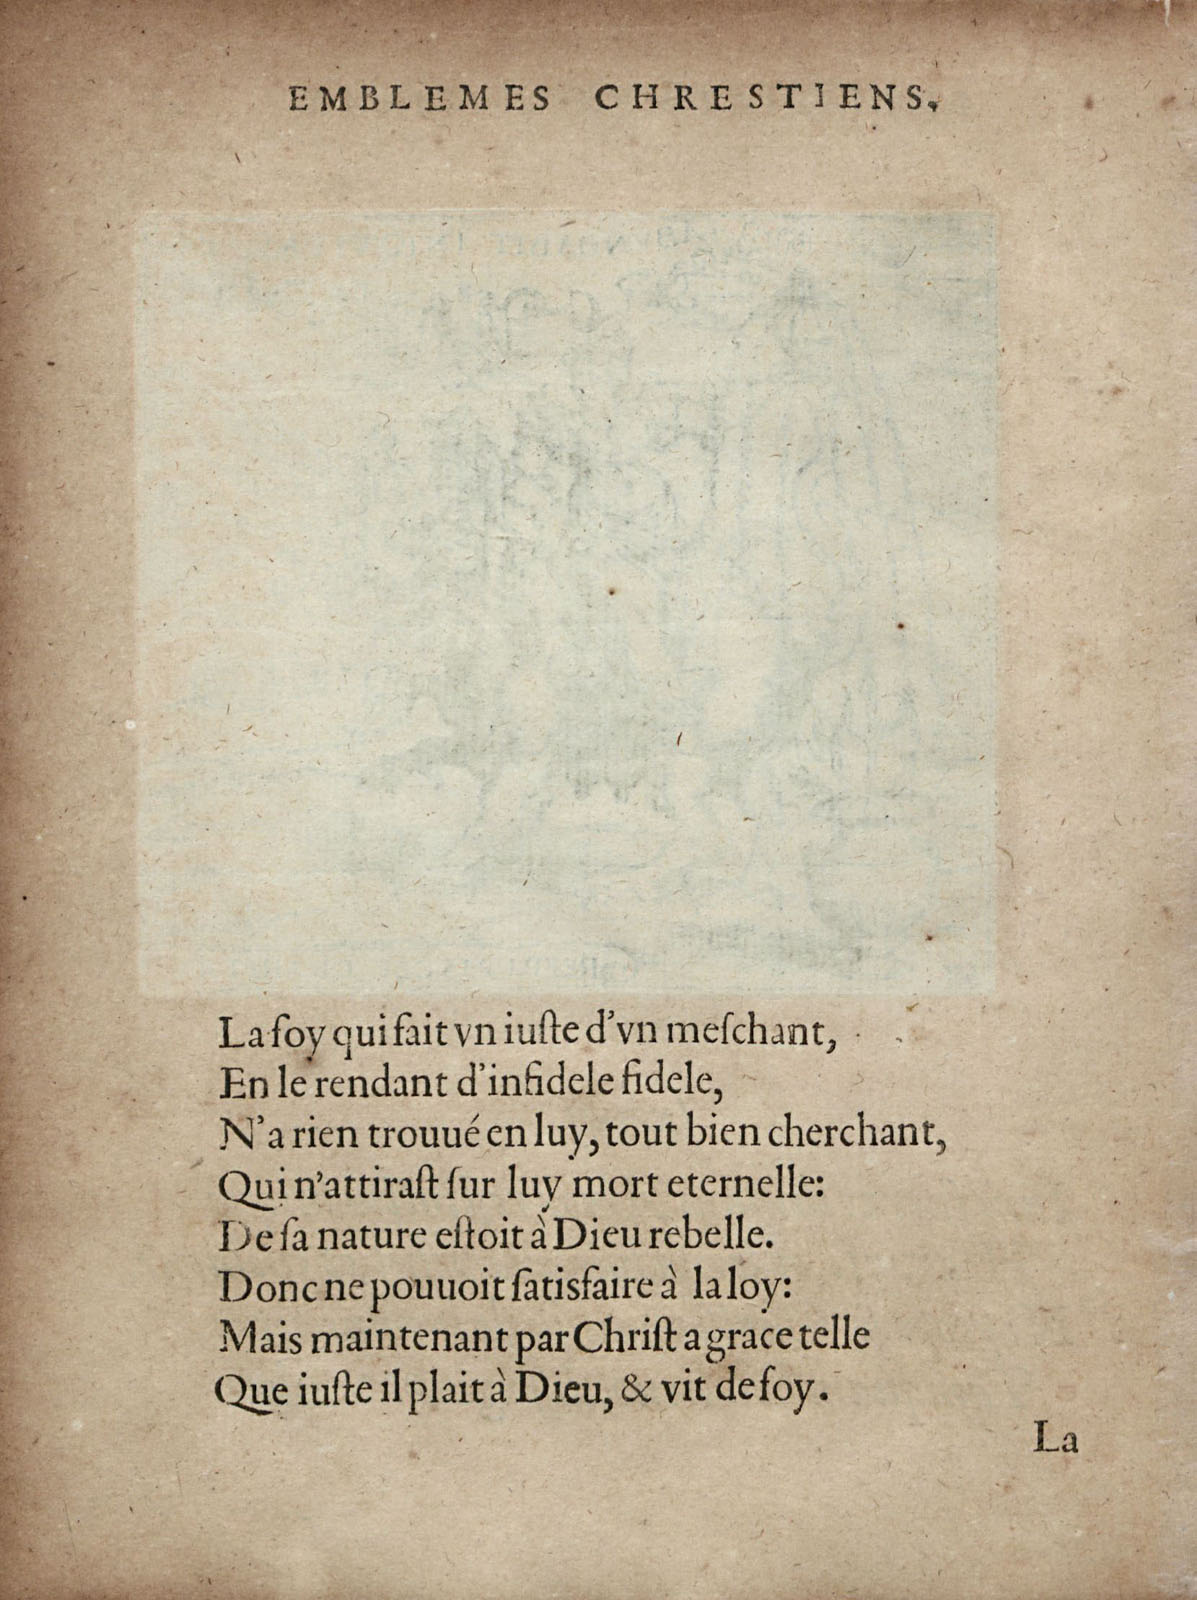 EMBLEMES CHRESTIENS.
La foy qui fait vn iuſte d'vn meſchant,
En le rendant d'infidele fidele,
N'a rien trouué en luy, tout bien cherchant,
Qui n'attiraſt ſur luy mort eternelle:
De ſa nature eſtoit à Dieu rebelle.
Donc ne pouuoit ſatisfaire à la loy:
Mais maintenant par Chriſt a grace telle
Que iuſte il plait à Dieu, & vit de foy.
La